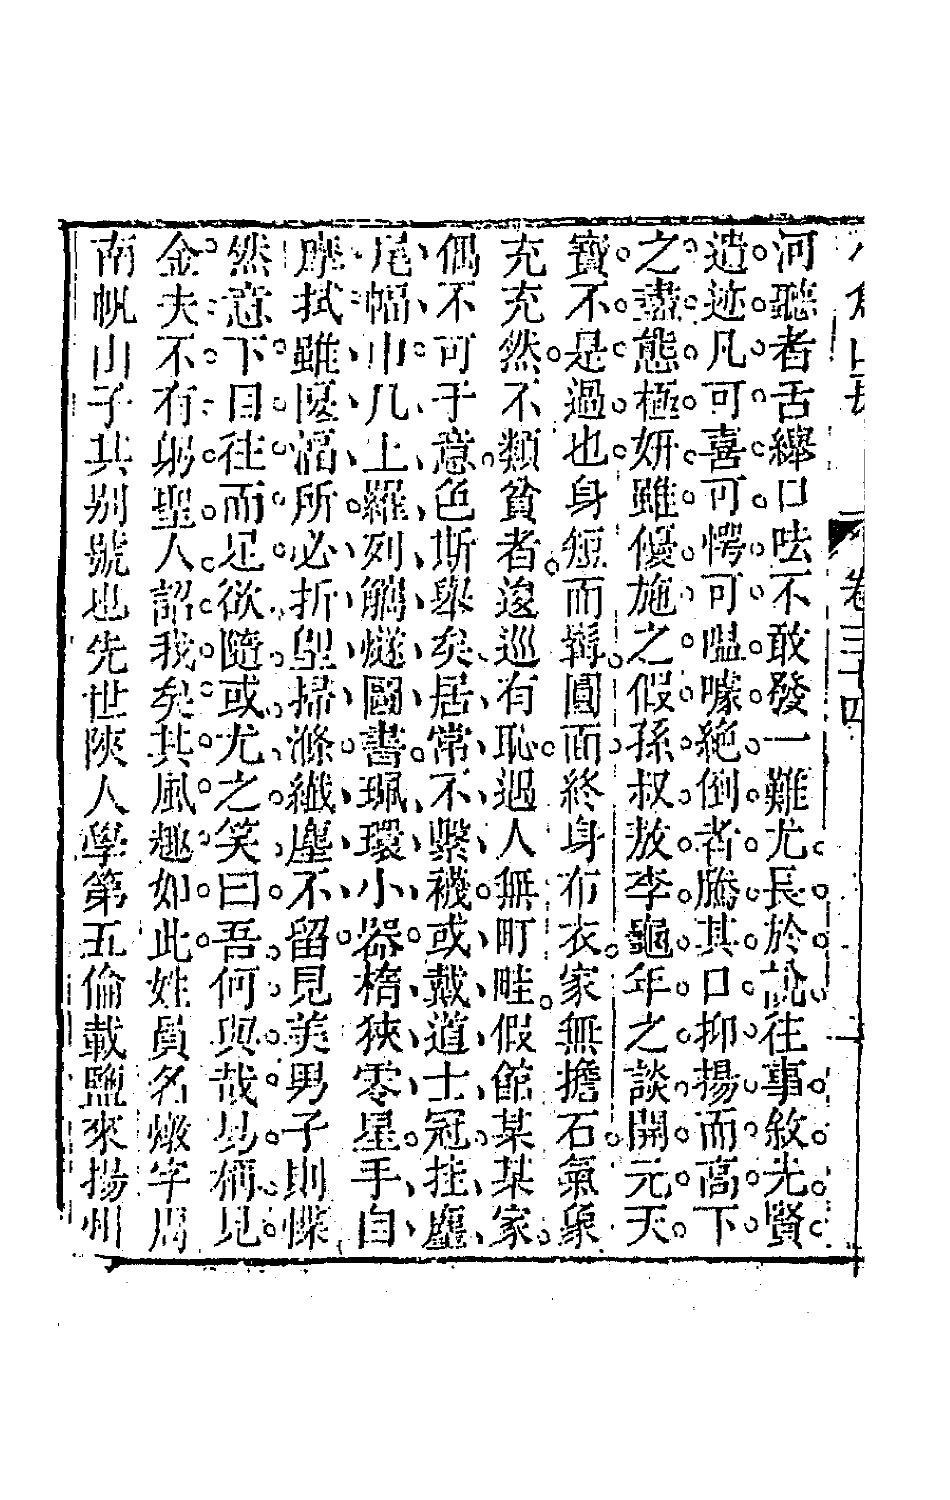 卷三十四
河聽者舌繟口呿不敢發一難尤長於說往事敘先賢
遺迹凡可喜可愕可嗢噱絕倒者騰其口抑揚而高下
之盡態極妍雖優施之假孫叔敖李龜年之談開元天
寶不是過也身短而髯圓面終身布衣家無擔石氣象
充充然不類貧者逡巡有恥遇人無町畦假館某某家
偶不可于意色斯舉矣居常不繫襪或戴道士冠拄麈
尾幅巾几上羅列觿燧圖書珮環小器楕狹零星手自
摩拭雖匽湢所必折望掃滌纖塵不留見美男子則慄
然意下目往而足欲隨或尤之笑曰吾何與哉易稱見
金夫不有躬聖人詔我矣其風趣如此姓員名燉字周
南帆山子其別號也先世陝人學第五倫載鹽來揚州